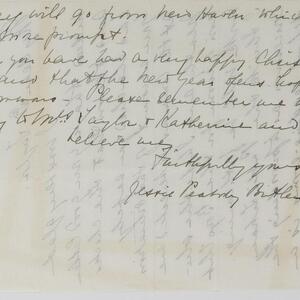 ey will go from New Haven which
more prompt.
you have had a very happy Chris
and that the new year opens hap
Please remember me
to Mrs. Taylor & Katherine and
believe me,
Faithfully yours
Jessie Peabody Butler